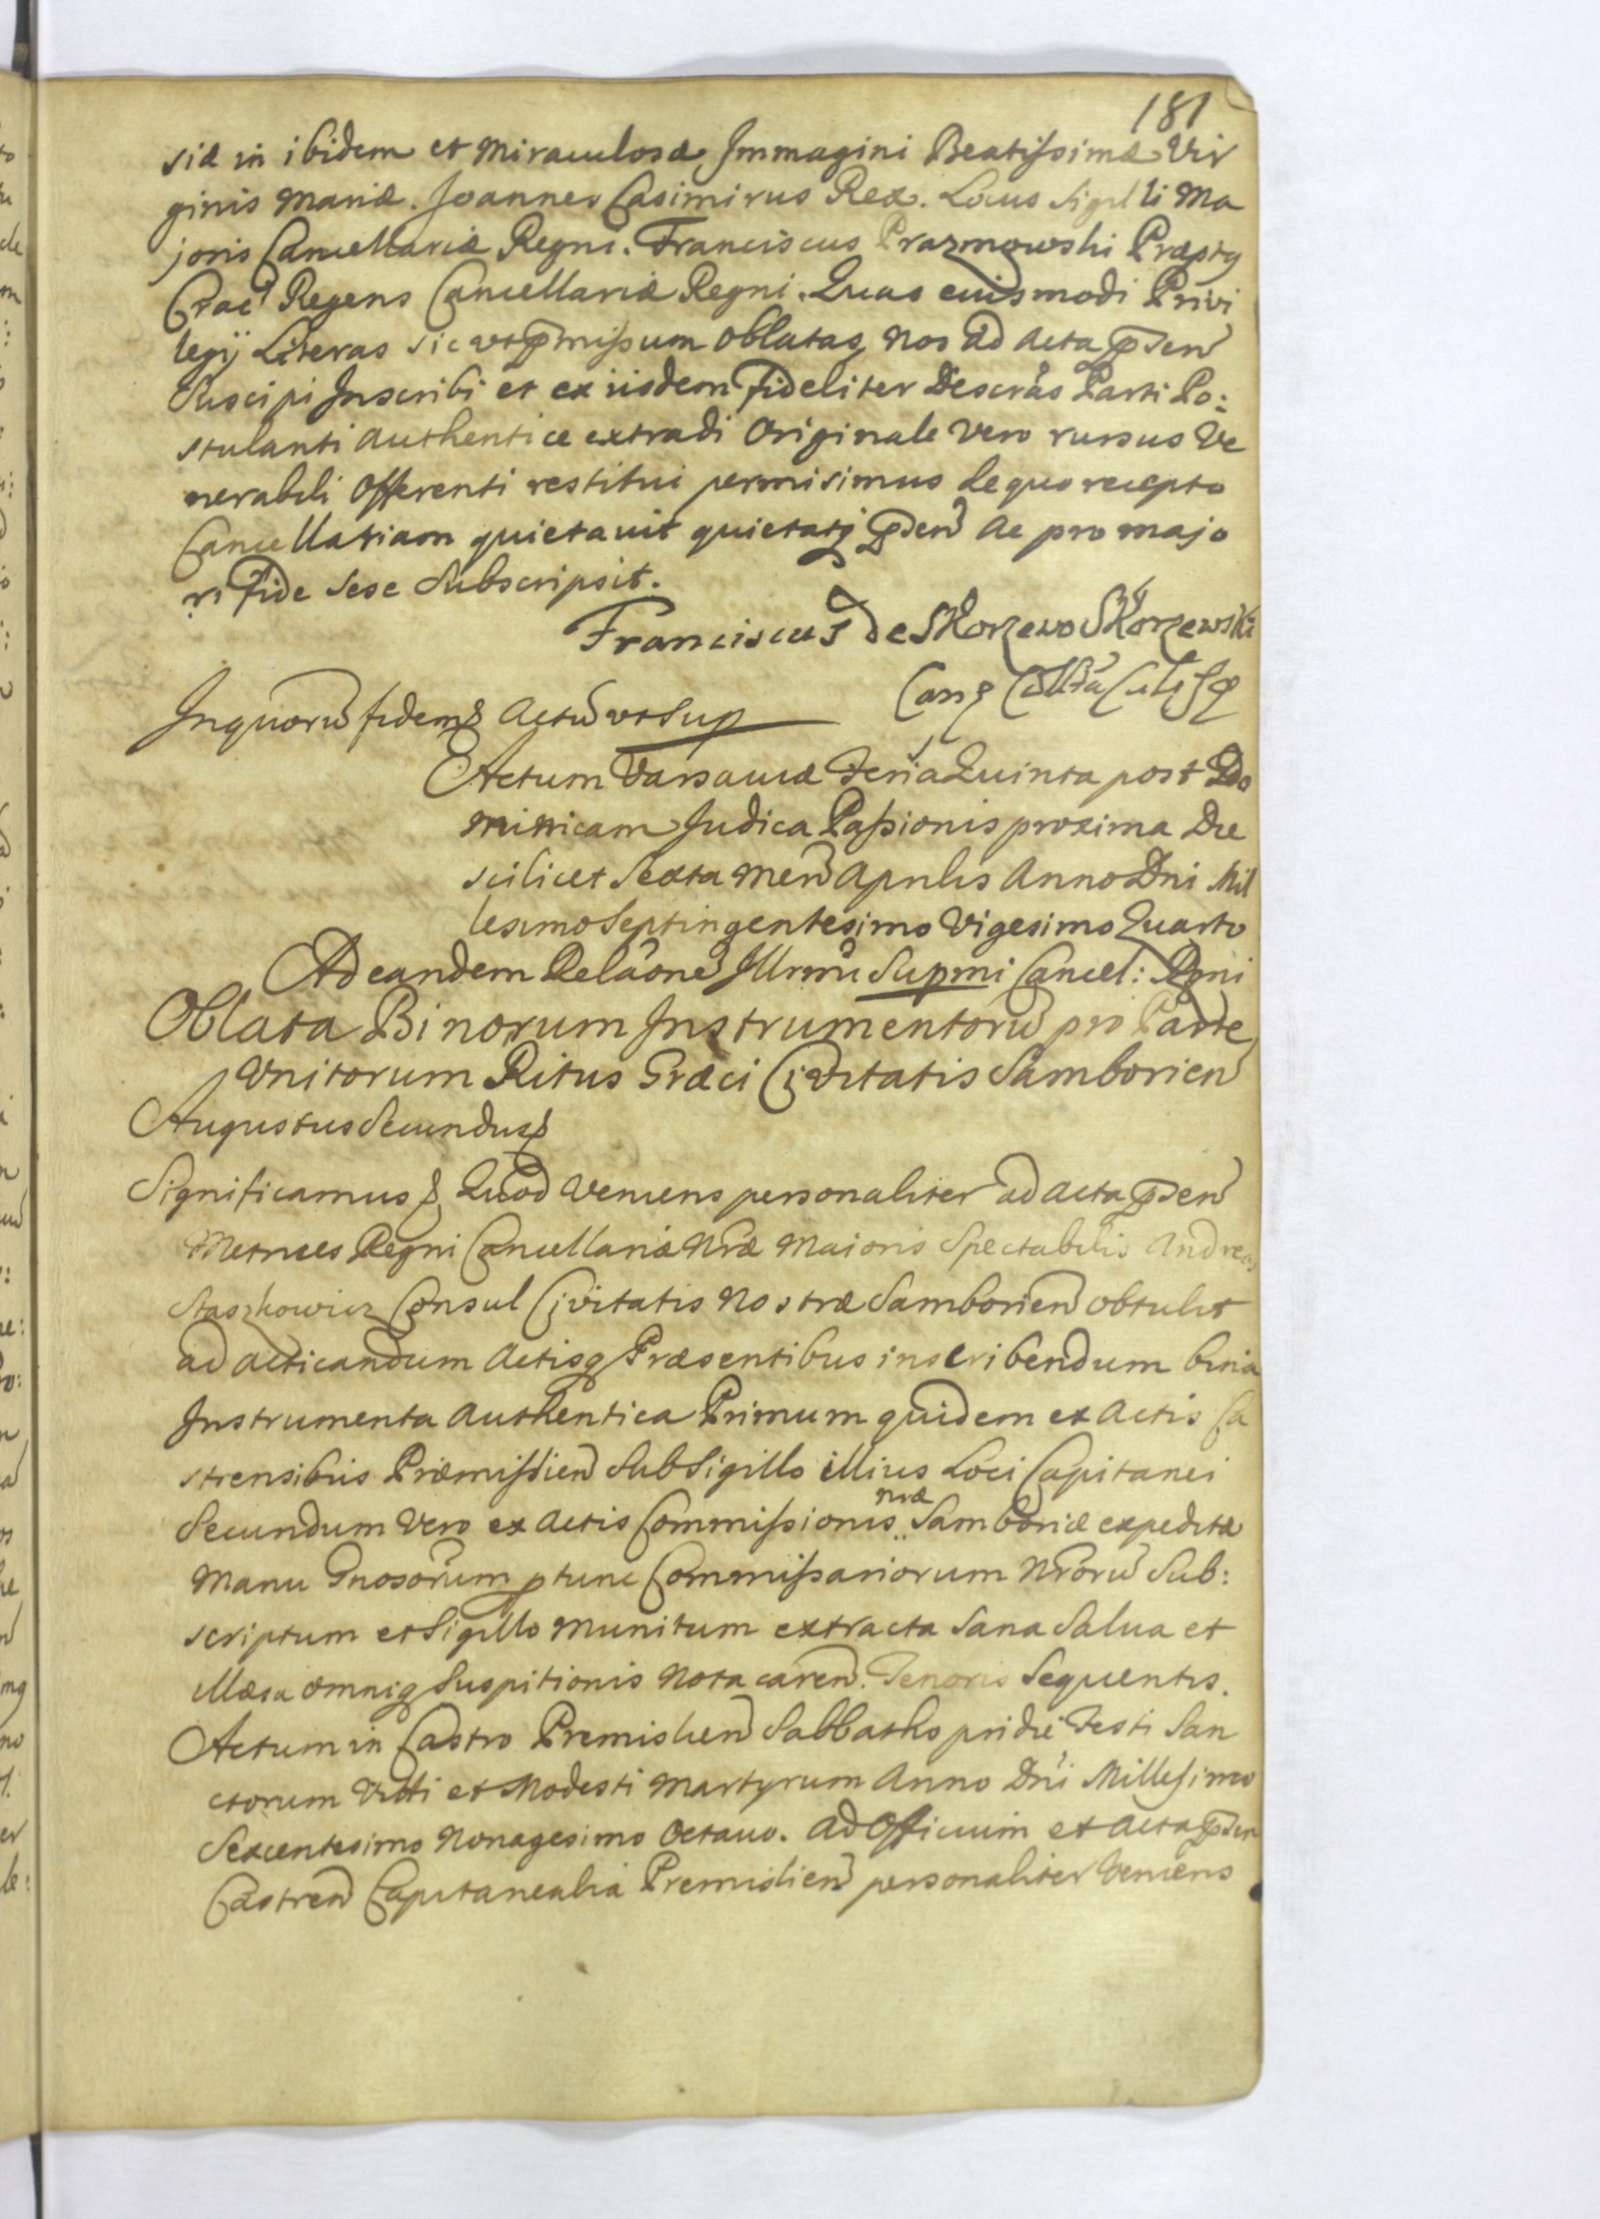 181
siæ in ibidem et Miraculosæ Immagini Beatissimæ Vir
ginis Mariæ. Joannes Casimirus Rex. Locus Sigilli Ma
joris Cancellariæ Regni. Franciscus Prazmowski Præptq
Crac: Regens Cancellariæ Regni. Quas eiusmodi Privi
legij Literas sic ut p̃missum oblatas Nos ad Acta p̃sen
Suscipi Inscribi et ex iisdem fideliter Descrãs Parti Po:
stulanti Authentice extradi Originale Vero rursus Ve
nerabili Offerenti restitui permisimus de quo recepto
Cancellariam quietavit quietatq p̃sen Ac pro majo
ri fide sese Subscripsit.
Franciscus de Skorzewo Skorzewski
Can
In quorũ fidem Actũ ut Sup
Actum Varsaviæ Feria Quinta post Do
minicam Judica Passionis proxima Die
scilicet Sexta Men Aprilis Anno Dni Mil
lesimo Septingentesimo Vigesimo Quarto
Ad eandem Relãone Illrmi Supmi Cancel: Rgni
Oblata Binorum Instrumentorũ pro Parte
Unitorum Ritus Græci Civitatis Samborien
Augustus Secundus
Significamus Quod Veniens personaliter ad Acta p̃sen
Metrices Regni Cancellariæ Nræ Maioris Spectabilis Andreas
Staszkowicz Consul Civitatis Nostræ Samborien obtulit
ad acticandum Actisq Præsentibus inscribendum bina
Instrumenta Authentica Primum quidem ex Actis Ca
strensibus Præmislien Sub Sigillo illius Loci Capitanei
Secundum Vero ex Actis Commissionis nræ Samboriæ expeditæ
Manu Gnosorum ptunc Commissariorum Nrorũ Sub:
scriptum et Sigillo Munitum extracta Sana Salva et
illæsa omniq Suspitionis Nota caren. Tenoris Sequentis.
Actum in Castro Premislien Sabbatho pridie Festi San
ctorum Viti et Modesti Martyrum Anno Dni Millesimo
Sexcentesimo Nonagesimo Octavo. Ad Officium et Acta p̃sen
Castren Capitanealia Premislien personaliter Veniens